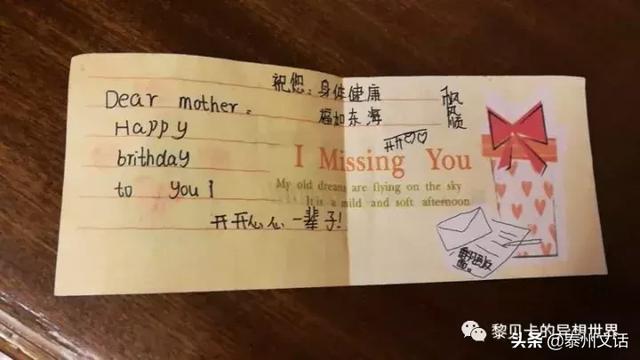 祝您：身体健康
福如东海
Dear mother。
Happy
brithday
to you！
开开心心一辈子！
I Missing You
My old dreams are flying on the sky
It is a mild and soft afternoon
黎贝卡的异想世界
头条 @泰州文话